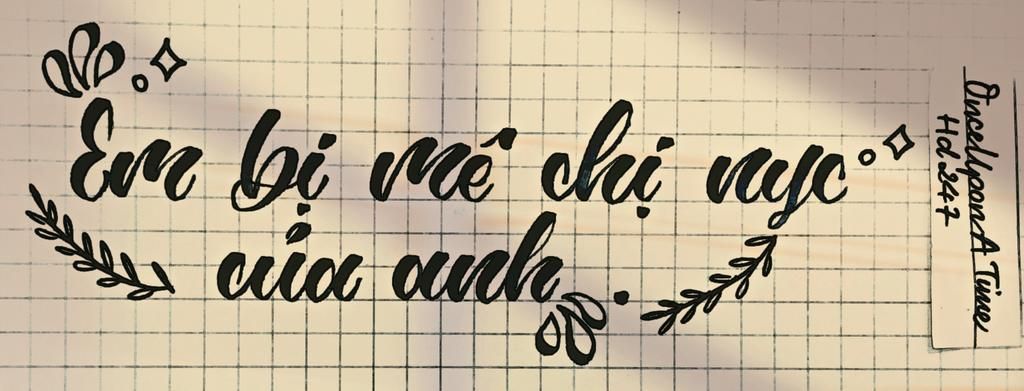 Em bị mê chị nyc
của anh.
OnceUponA Time
Hd.247